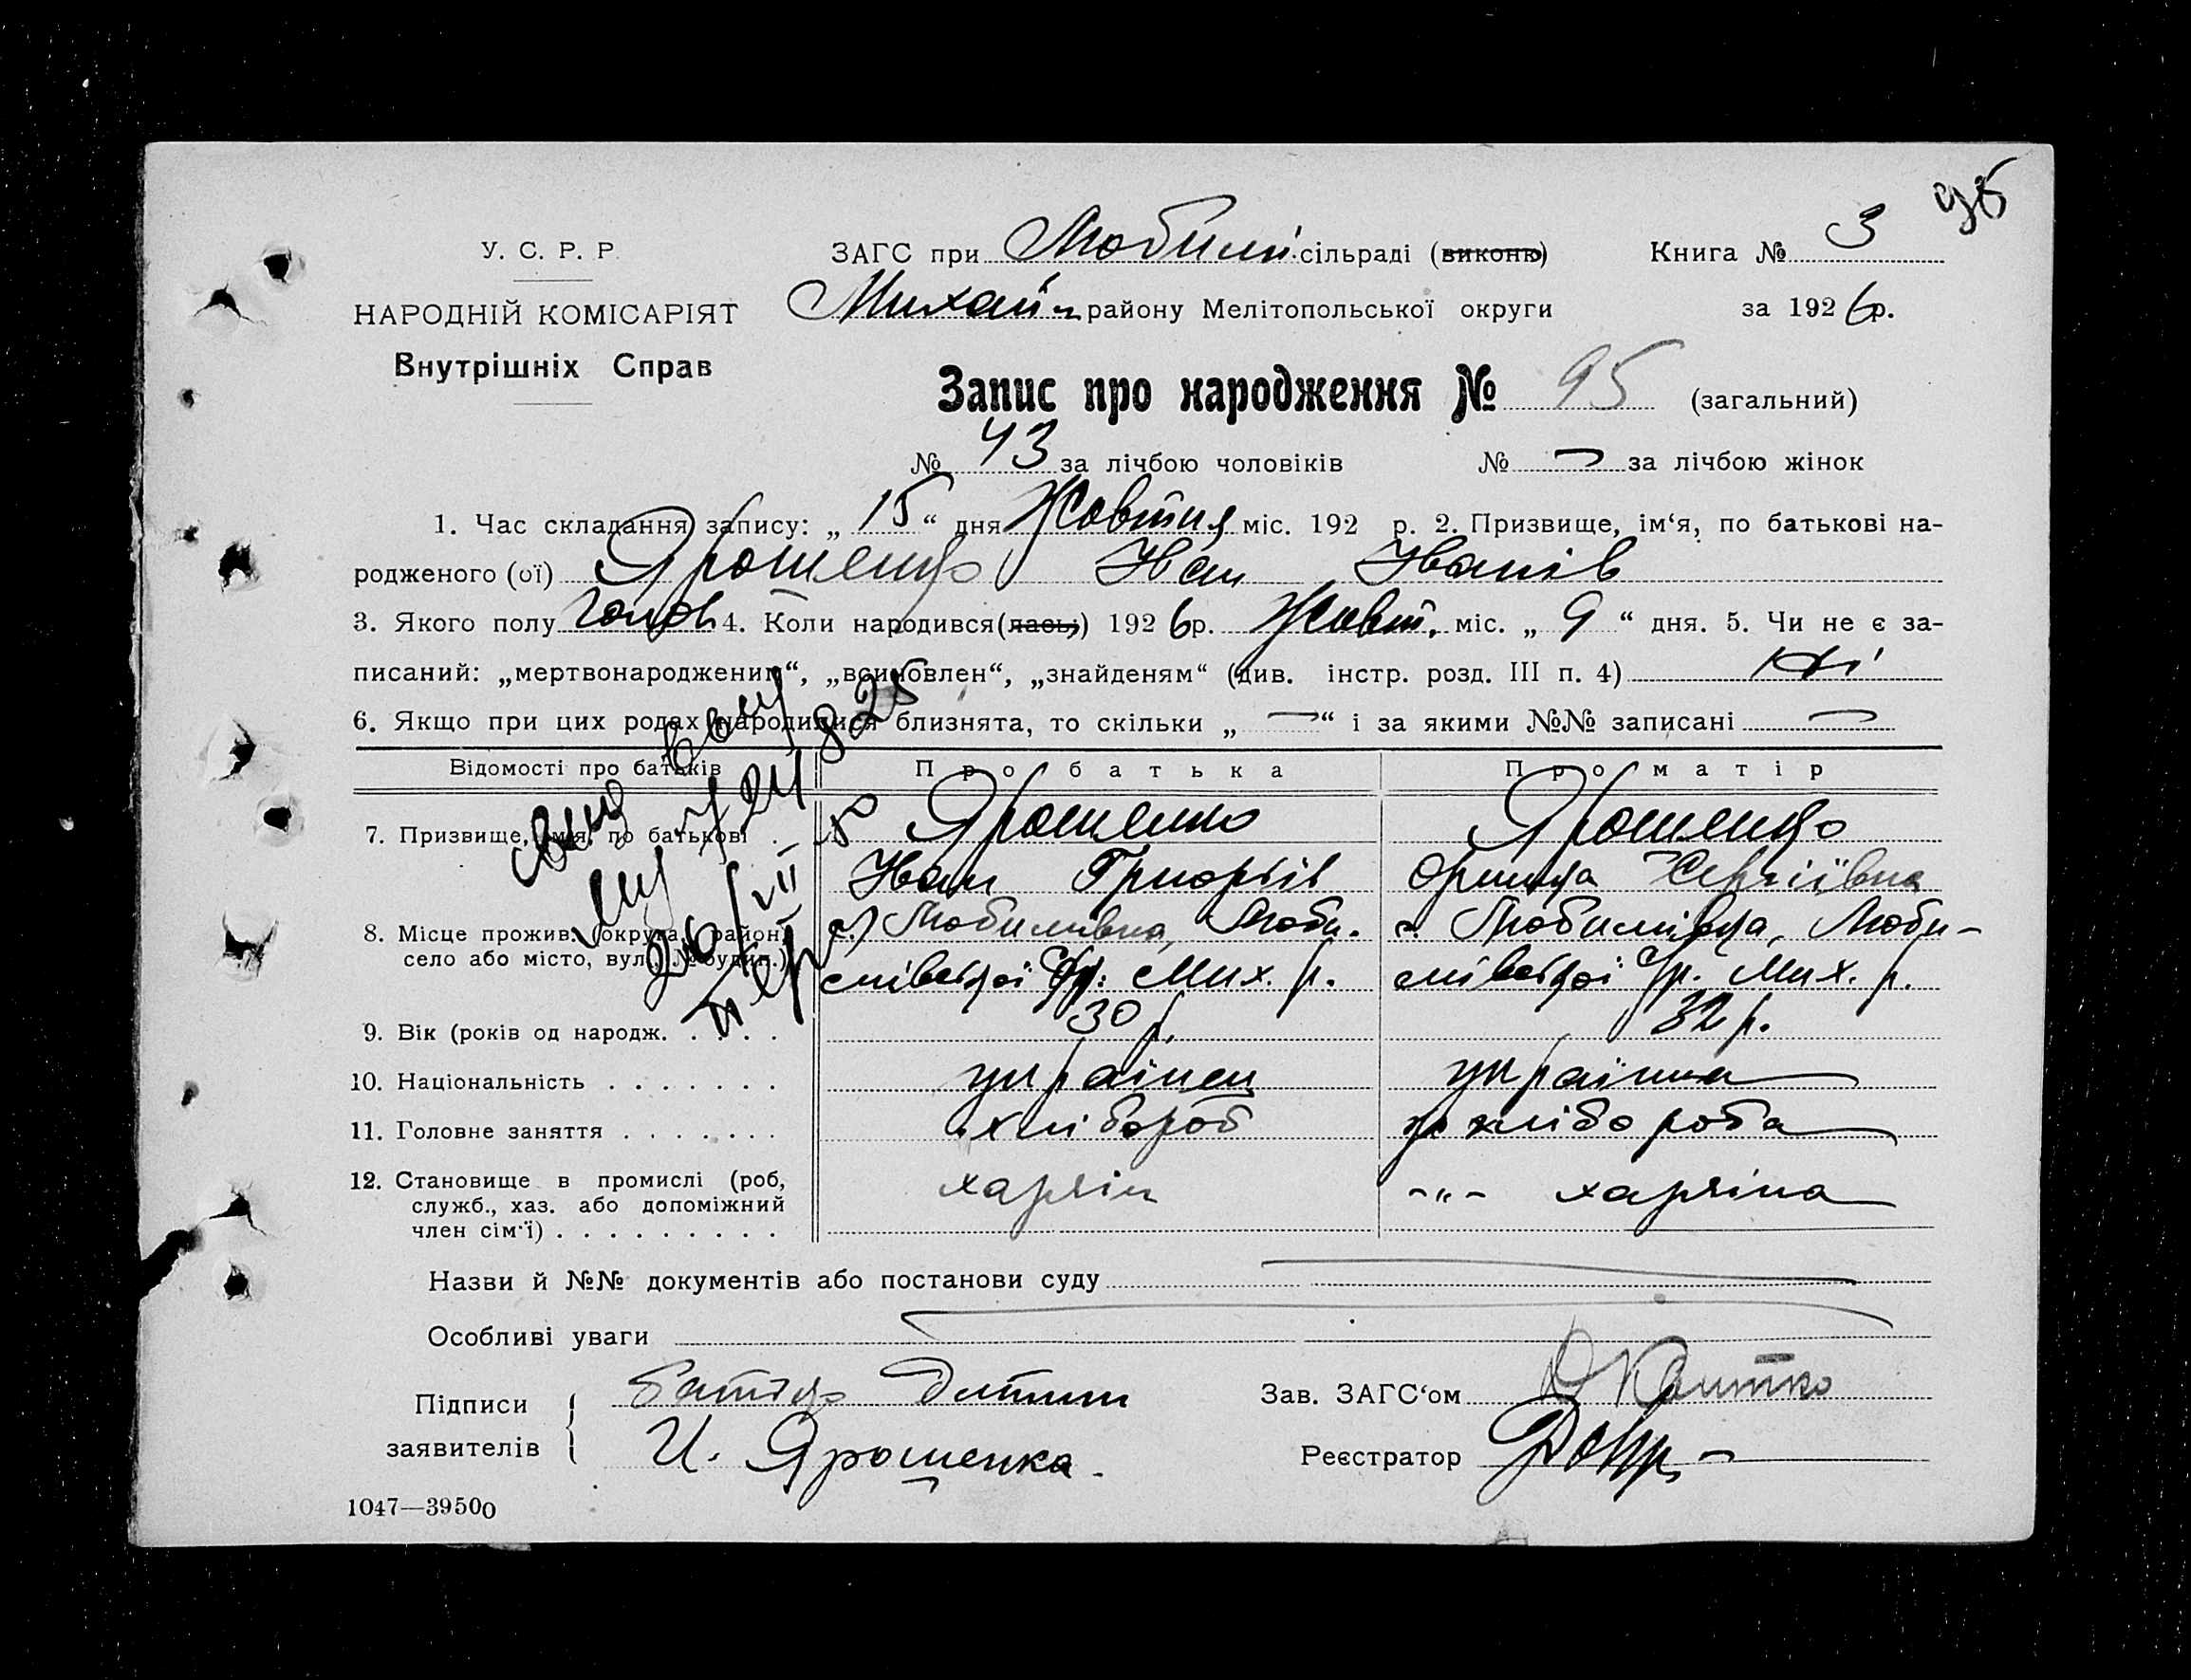 95
У. С. Р. Р.
ЗАГС при Любимі. сільраді (виконк)
Книга № 3
НАРОДНІЙ КОМІСАРІЯТ
Михай району Мелітопольської округи
за 1926 р.
Внутрішніх Справ
Запис про народження № 95 (загальний)
№ 43 за лічбою чоловіків № — за лічбою жінок
1. Час складання запису: „ 15 “ дня Жовтня міс. 192 р. 2. Призвище, ім‘я, по батькові на-
родженого (ої) Ярошенко Іван Іванів
3. Якого полу чолов 4. Коли народився(лась) 1926 р. Жовт. міс. „ 9 “ дня. 5. Чи не є за-
писаний: „мертвонароджений“, „всиновлен“, „знайденям“ (див. інстр. розд. III п. 4) ні
6. Якщо при цих родах народилися близнята, то скільки „ — “ і за якими №№ записані —
Відомості про батьків Про батька Про матір
7. Призвище, ім'я, по батькові . Ярошенко Ярошенко
Іван Григорьів Оришка Сергіївна
8. Місце прожив. (округа, район, с. Любимівка, Люби- с. Любимівка, Люби-
село або місто, вул., № будин.) мівської с/р. Мих. р. мівської с/р. Мих. р.
9. Вік (років од народж. . . . . 30 р. 32 р.
10. Національність . . . . . . . українец українка
11. Головне заняття . . . . . . . хлібороб хлібороба
12. Становище в промислі (роб, хазяїн -„- хазяїна
служб., хаз. або допоміжний
член сім'ї) . . . . . . . . .
Назви й №№ документів або постанови суду
Особливі уваги
Підписи батько дитини Зав. ЗАГС‘ом
заявителів И. Ярошенка. Реєстратор
1047—39500